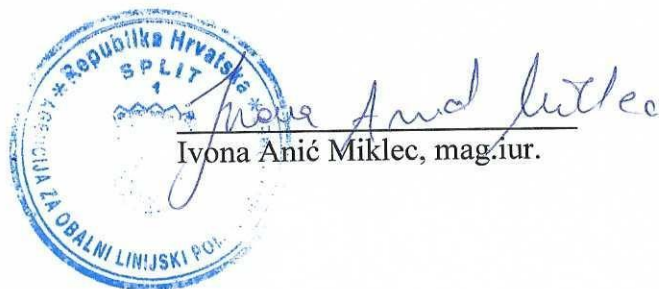 Republika Hrvatska
SPLIT
1
AGENCIJA ZA OBALNI LINIJSKI
Ivona Anić Miklec
Ivona Anić Miklec, mag.iur.